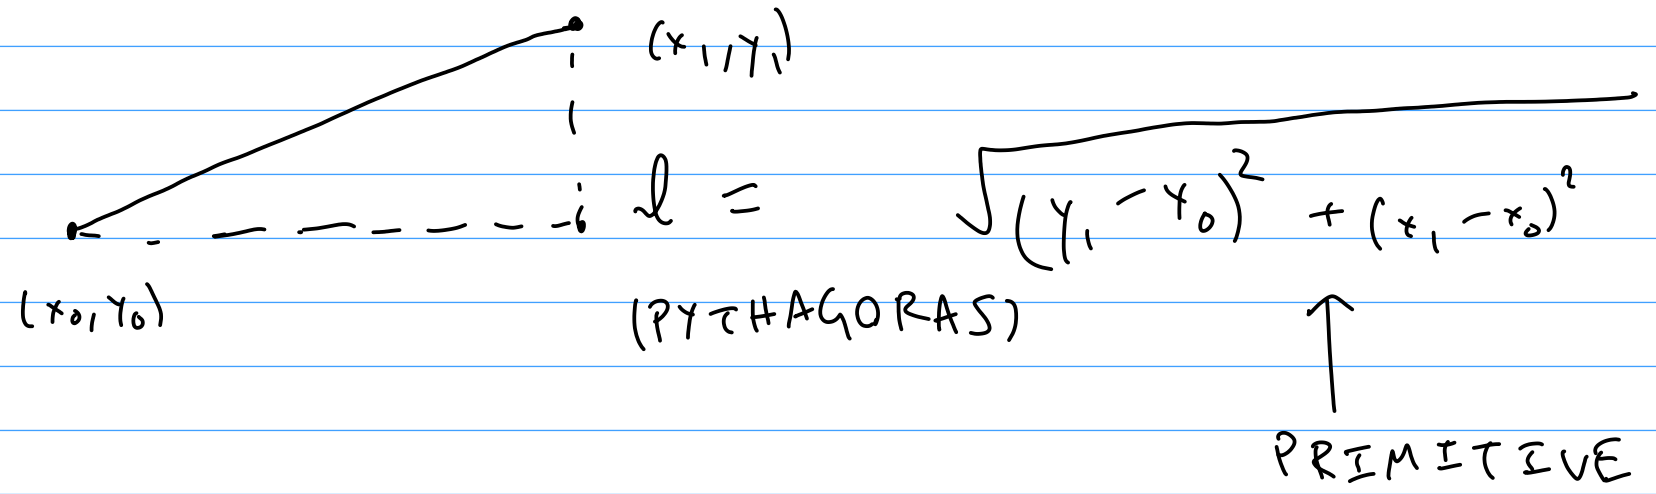 (x₁, y₁)
l = √((y₁ - y₀)² + (x₁ - x₀)²)
(x₀, y₀)
(PYTHAGORAS)
PRIMITIVE